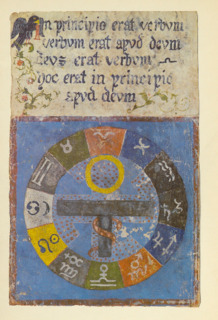 In principio erat verbum
verbum erat apud deum
deus erat verbum
hoc erat in principio
apud deum